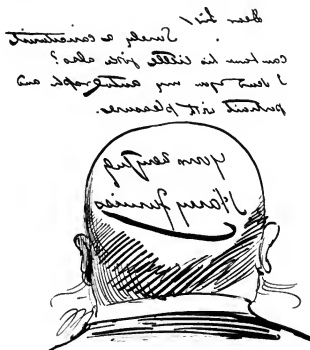 Dear Sir/
Surely a caricaturist
can have his little joke also?
I send you my autograph and
portrait with pleasure.
Yours
Harry Furniss